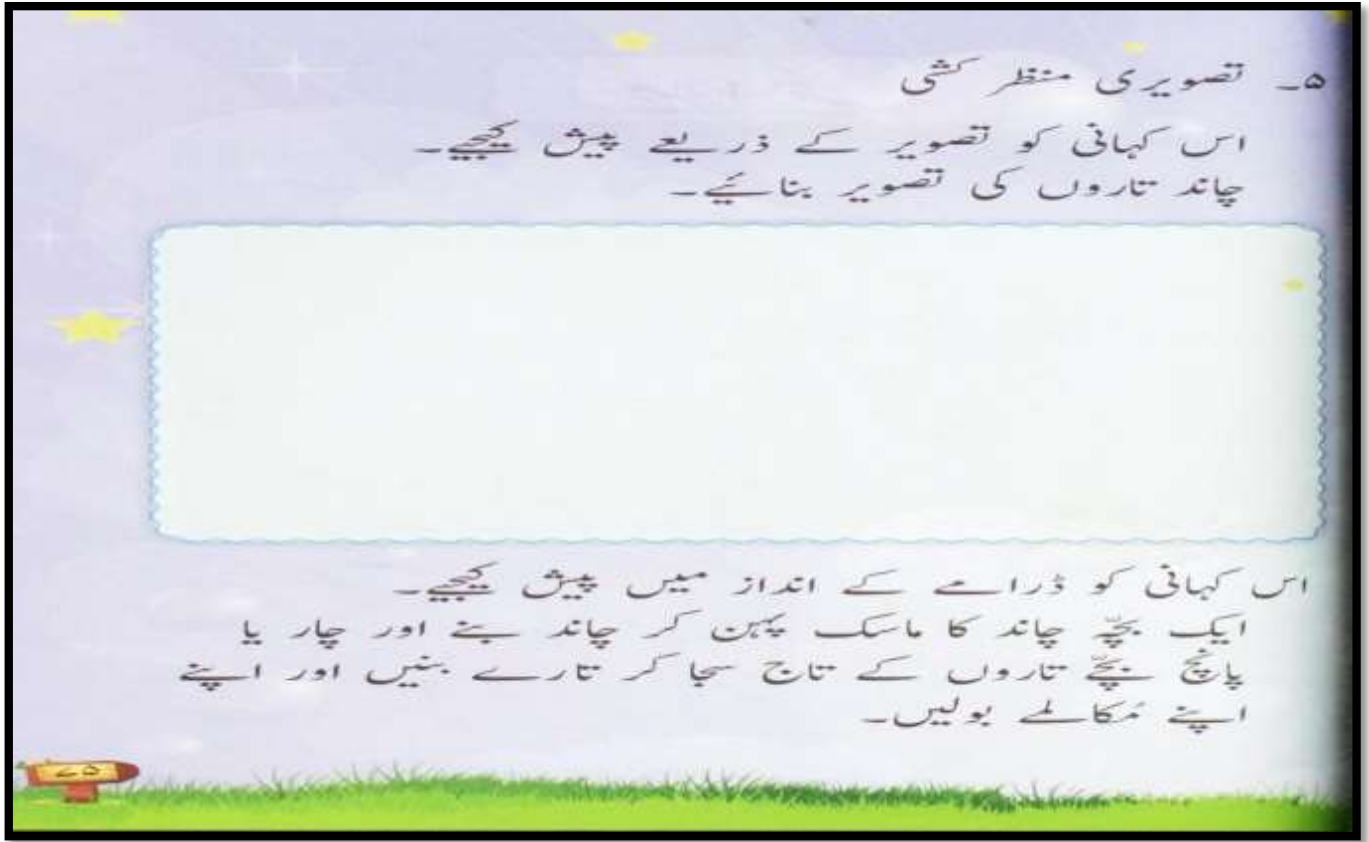 ۵۔ تصویری منظر کشی
اس کہانی کو تصویر کے ذریعے پیش کیجیے۔
چاند تاروں کی تصویر بنائیے۔
اس کہانی کو ڈرامے کے انداز میں پیش کیجیے۔
ایک بچّہ چاند کا ماسک پہن کر چاند بنے اور چار یا
پانچ بچّے تاروں کے تاج سجا کر تارے بنیں اور اپنے
اپنے مُکالمے بولیں۔
۷۵